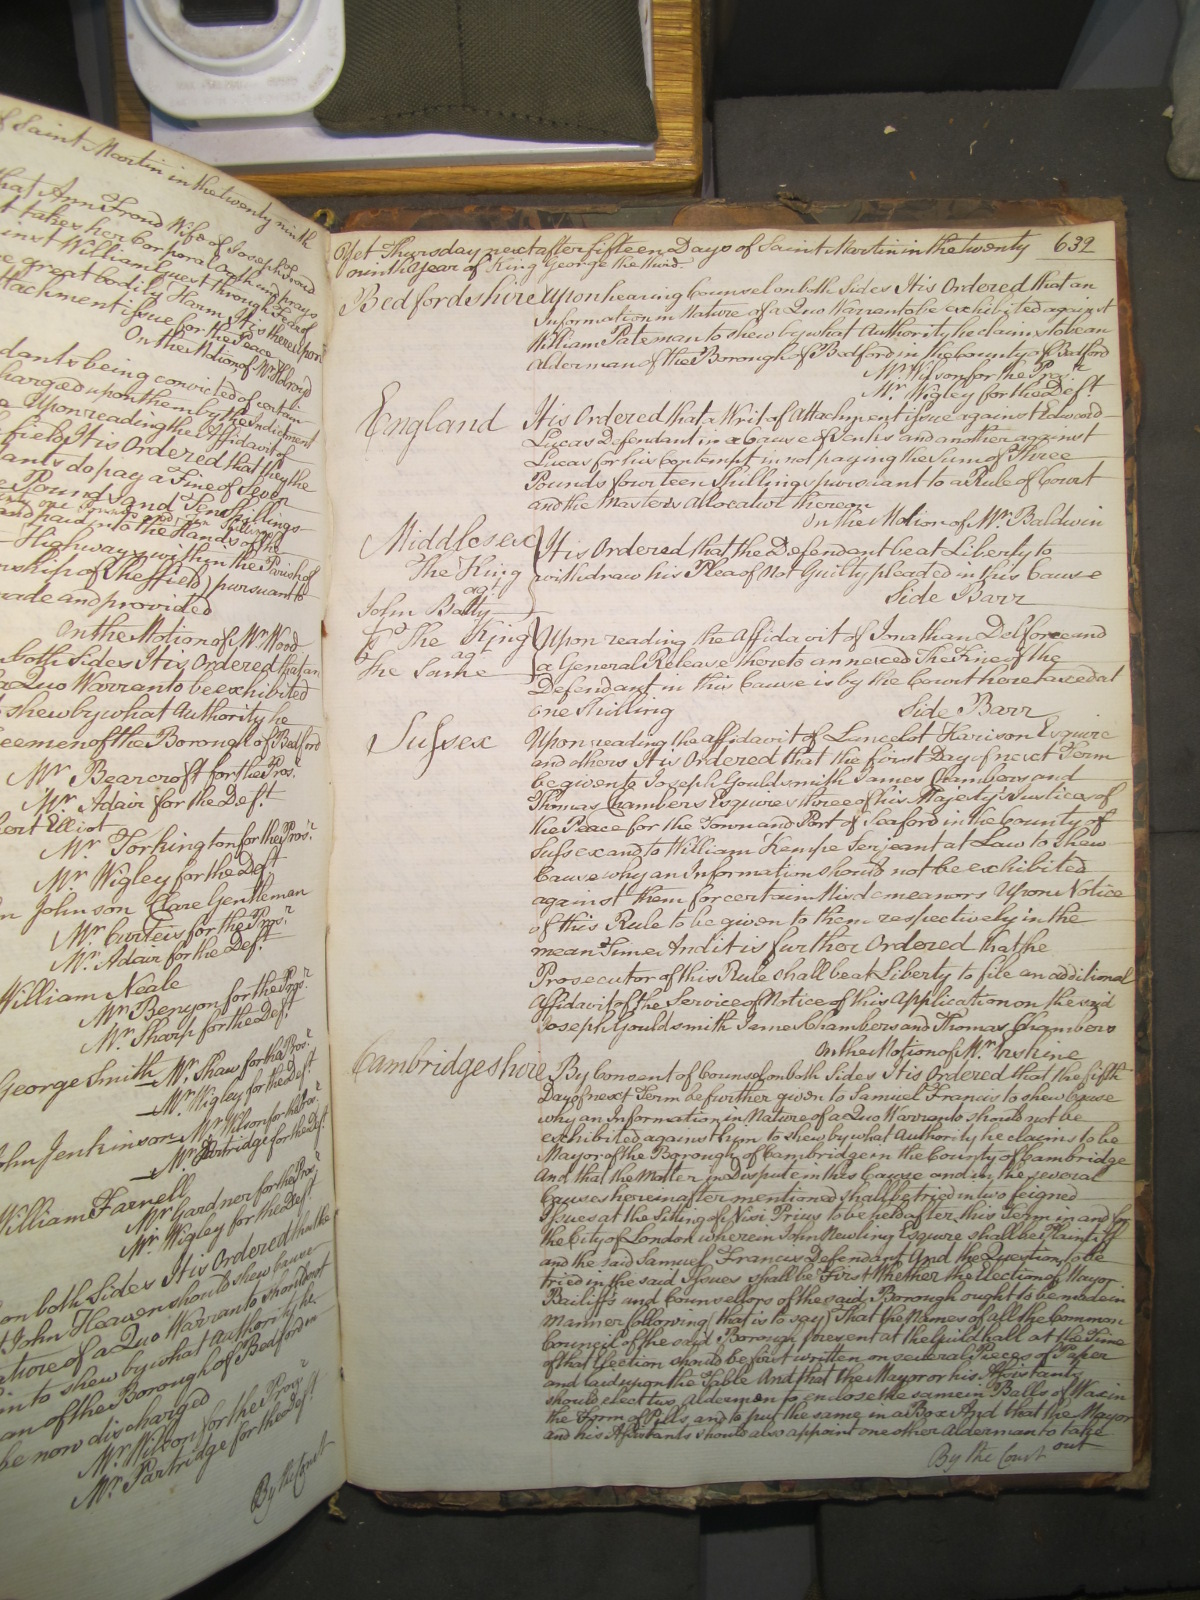 of Saint Martin in the twenty ninth
that Ann Froud Wife of Joseph Froud
takes her Corporal Oath and prays
against William Guest through Fear of
great bodily Harm It is thereupon
Attachment issue for the Peace
On the Motion of Mr. Holroyd
dants being convicted of certain
charged upon them by the Indictment
Upon reading the Affidavit of
field It is Ordered that they the
ants do pay a Fine of Seven
Pounds and Ten Shillings
and paid into the Hands of the
Highways within the Parish of
ship of Sheffield pursuant to
made and provided
On the Motion of Mr. Wood
both Sides It is Ordered that an
a Quo Warranto be exhibited
shew by what Authority he
eemen of the Borough of Bedford
Mr. Bearcroft for the Pros.r
Mr. Adair for the Def.t
bert Elliot
Mr. Torkington for the Pros.r
Mr. Wigley for the Def.t
Johnson Clare Gentleman
Mr. Curteis for the Pros.r
Mr. Adair for the Def.t
William Neale
Mr. Benyon for the Pros.r
Mr. Sharp for the Def.t
George Smith Mr. Shaw for the Pros.r
Mr. Wigley for the Def.t
John Jenkinson Mr. Wilson for the Pros.r
Mr. Partridge for the Def.t
William Farnell
Mr. Gardnor for the Pros.r
Mr. Wigley for the Def.t
on both Sides It is Ordered that the
John Heaven should shew Cause
ature of a Quo Warranto should not
him to shew by what Authority he
an of the Borough of Bedford in
be now discharged
Mr. Wilson for the Pros.r
Mr. Partridge for the Def.t
By the Court
Yet Thursday next after fifteen Days of Saint Martin in the twenty 632
ninth Year of King George the third
Bedfordshire Upon hearing Counsel on both Sides It is Ordered that an
Information in Nature of a Quo Warranto be exhibited against
William Pateman to shew by what Authority he claims to be an
Alderman of the Borough of Bedford in the County of Bedford
Mr. Wilson for the Pros.r
Mr. Wigley for the Def.t
England It is Ordered that a Writ of Attachment issue against Edward
Lucas Defendant in a Cause of Denhs and another against
Lucas for his Contempt in not paying the Sum of Three
Pounds fourteen Shillings pursuant to a Rule of Court
and the Masters Allocatur thereon
On the Motion of Mr. Baldwin
Middlesex It is Ordered that the Defendant be at Liberty to
The King withdraw his Plea of Not Guilty pleaded in this Cause
ag.t Side Barr
John Batty
The King Upon reading the Affidavit of Jonathan Delforce and
ag.t a General Release thereto annexed The Fine of the
The Same Defendant in this Cause is by the Court here taxed at
one Shilling Side Barr
Sussex Upon reading the Affidavit of Luncelot Harison Esquire
and others It is Ordered that the first Day of next Term
be given to Joseph Gouldsmith James Chambers and
Thomas Chambers Esquires three of his Majesty's Justices of
the Peace for the Town and Port of Seaford in the County of
Sussex and to William Kempe Serjeant at Law to Shew
Cause why an Information should not be exhibited
against them for certain Misdemeanors Upon Notice
of this Rule to be given to them respectively in the
mean Time And it is further Ordered that the
Prosecutor of this Rule shall be at Liberty to file an additional
Affidavit of the Service of Notice of this Application on the said
Joseph Gouldsmith James Chambers and Thomas Chambers
On the Motion of Mr. Erskine
Cambridgeshire By Consent of Counsel on both Sides It is Ordered that the fifth
Day of next Term be further given to Samuel Francis to shew Cause
why an Information in Nature of a Quo Warranto should not be
exhibited against him to shew by what Authority he claims to be
Mayor of the Borough of Cambridge in the County of Cambridge
And that the Matter in Dispute in this Cause and in the several
Causes hereinafter mentioned shall be tried in two feigned
Issues at the Sitting of Nisi Prius to be held after this Term in and for
the City of London wherein John Newling Esquire shall be Plaintiff
and the said Samuel Francis Defendant And the Question to be
tried in the said Issues shall be First Whether the Election of Mayor
Bailiffs and Counsellors of the said Borough ought to be made in
Manner following that is to say) That the Names of all the Common
Council of the said Borough present at the Guildhall at the Time
of that Election should be first written on several Pieces of Paper
and laid upon the Table And that the Mayor or his Assistants
should elect two Aldermen to enclose the same in Balls of Wax in
the Form of Pills and to put the same in a Box And that the Mayor
and his Assistants should also appoint one other Alderman to take
By the Court out